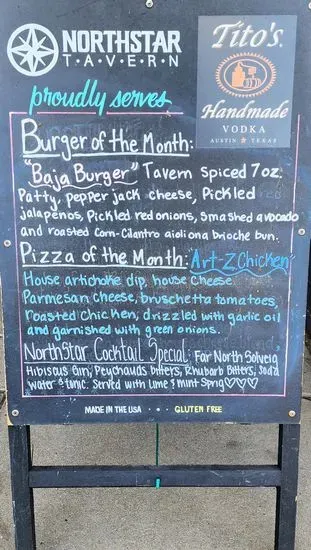 NORTHSTAR
T·A·V·E·R·N
proudly serves
Tito's
Handmade
VODKA
AUSTIN ★ TEXAS
Burger of the Month:
"Baja Burger" Tavern Spiced 7oz.
Patty, pepper jack cheese, Pickled red
jalapeños, Pickled red onions, smashed avocado
and roasted Corn-Cilantro aioli on a brioche bun.
Pizza of the Month: Art-Z Chicken
House artichoke dip, house cheese
Parmesan cheese, bruschetta tomatoes,
roasted chicken, drizzled with garlic oil
and garnished with green onions.
NorthStar Cocktail Special: Far North Solveig
Hibiscus Gin, Peychauds bitters, Rhubarb Bitters, soda
water & tonic. Served with Lime & mint Sprig ♡♡♡
MADE IN THE USA • ★ • GLUTEN FREE